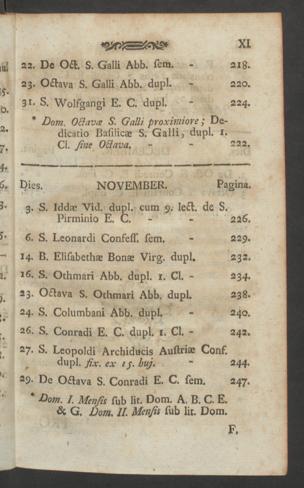 XI
22. De Oct. S. Galli Abb. sem. - 218.
23. Octava S. Galli Abb. dupl. - 220.
31. S. Wolfgangi E. C. dupl. - 224.
* Dom. Octavæ S. Galli proximiore; De-
dicatio Basilicæ S. Galli, dupl. 1.
Cl. sine Octava. - - 222.
Dies. NOVEMBER. Pagina.
3. S. Iddæ Vid. dupl. cum 9. lect. de S.
Pirminio E. C. - - 226.
6. S. Leonardi Confess. sem. - 229.
14. B. Elisabethæ Bonæ Virg. dupl. 232.
16. S. Othmari Abb. dupl. 1. Cl. - 234.
23. Octava S. Othmari Abb. dupl. 238.
24. S. Columbani Abb. dupl. - 240.
26. S. Conradi E. C. dupl. 1. Cl. - 242.
27. S. Leopoldi Archiducis Austriæ Conf.
dupl. fix. ex 15. huj. - 244.
29. De Octava S. Conradi E. C. sem. 247.
* Dom. I. Mensis sub lit. Dom. A. B. C. E.
& G. Dom. II. Mensis sub lit. Dom.
F,